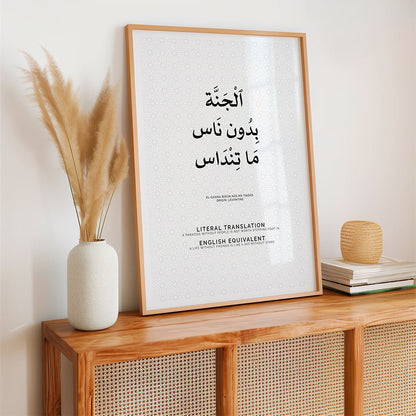 ٱلْجَنَّة
بِدُون نَاس
مَا تِنْدَاس
EL GANNA BIDUN NAS MA TINDAS
ORIGIN: LEVANTINE
LITERAL TRANSLATION
A PARADISE WITHOUT PEOPLE IS NOT WORTH STEPPING FOOT IN
ENGLISH EQUIVALENT
A LIFE WITHOUT FRIENDS IS LIKE A SKY WITHOUT STARS